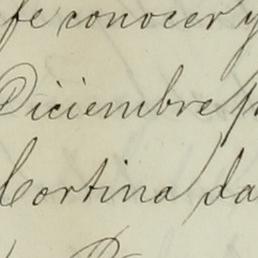 fe conocer y
Diciembre p
Cortina da